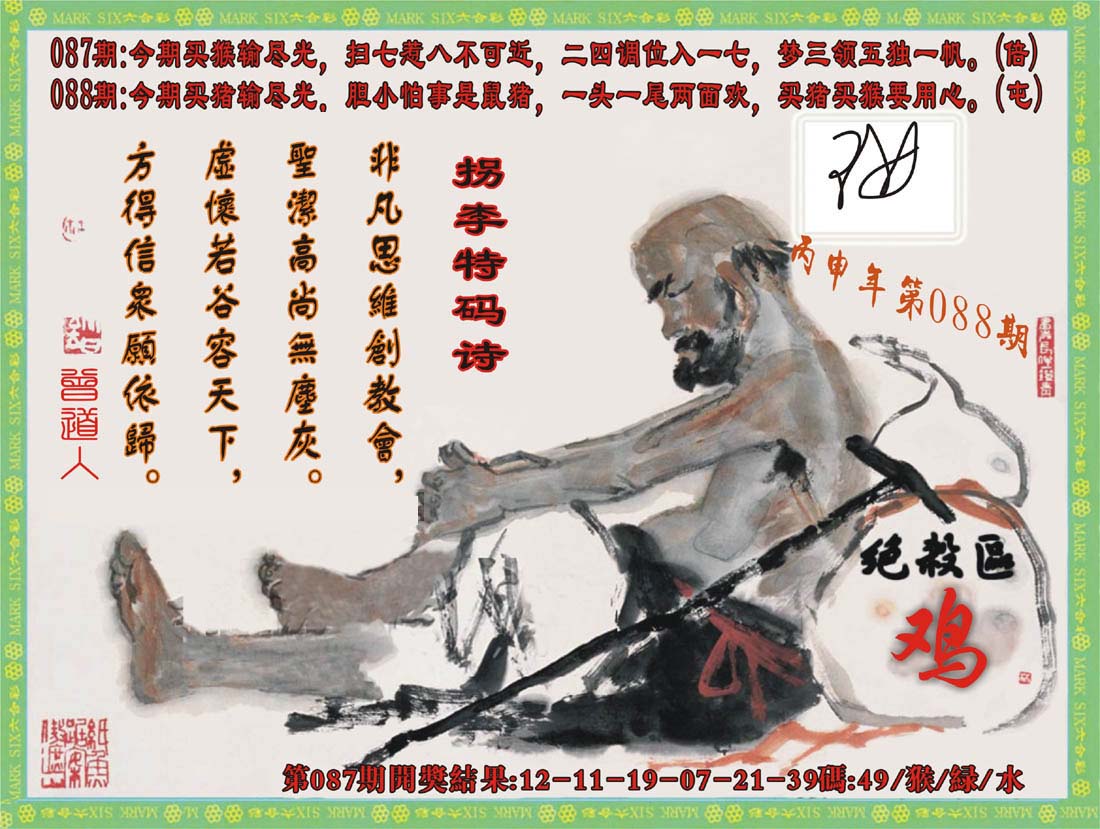 MARK SIX六合彩
087期:今期买猴输尽光，扫七惹八不可近，二四调位入一七，梦三领五独一帆。(倍)
088期:今期买猪输尽光．胆小怕事是鼠猪，一头一尾两面欢，买猪买猴要用心。(屯)
拐李特码诗
非凡思維創教會，
聖潔高尚無塵灰。
虛懷若谷容天下，
方得信眾願依歸。
曾道人
丙申年第088期
绝殺區
鸡
第087期開獎結果:12-11-19-07-21-39碼:49/猴/緑/水